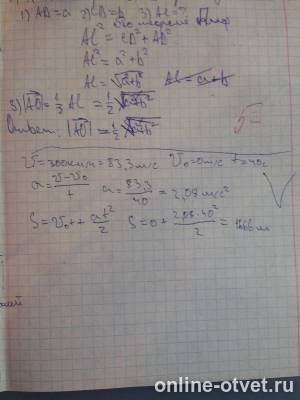 1) AB=a 2) CB=b 3) AC=?
По теореме Пиф
AC² = CB² + AB²
AC² = a² + b²
AC = √a²+b²
3) |AO| = ½ AC = ½ √a²+b²
Ответ: |AO| = ½ √a²+b²
5=
V=300км/ч=83,3 м/с V₀=0м/с t=40с
a = V-V₀/t a = 83,3/40 = 2,08 м/с²
S = V₀t + at²/2 S = 0 + 2,08·40²/2 = 1666 м
online-otvet.ru